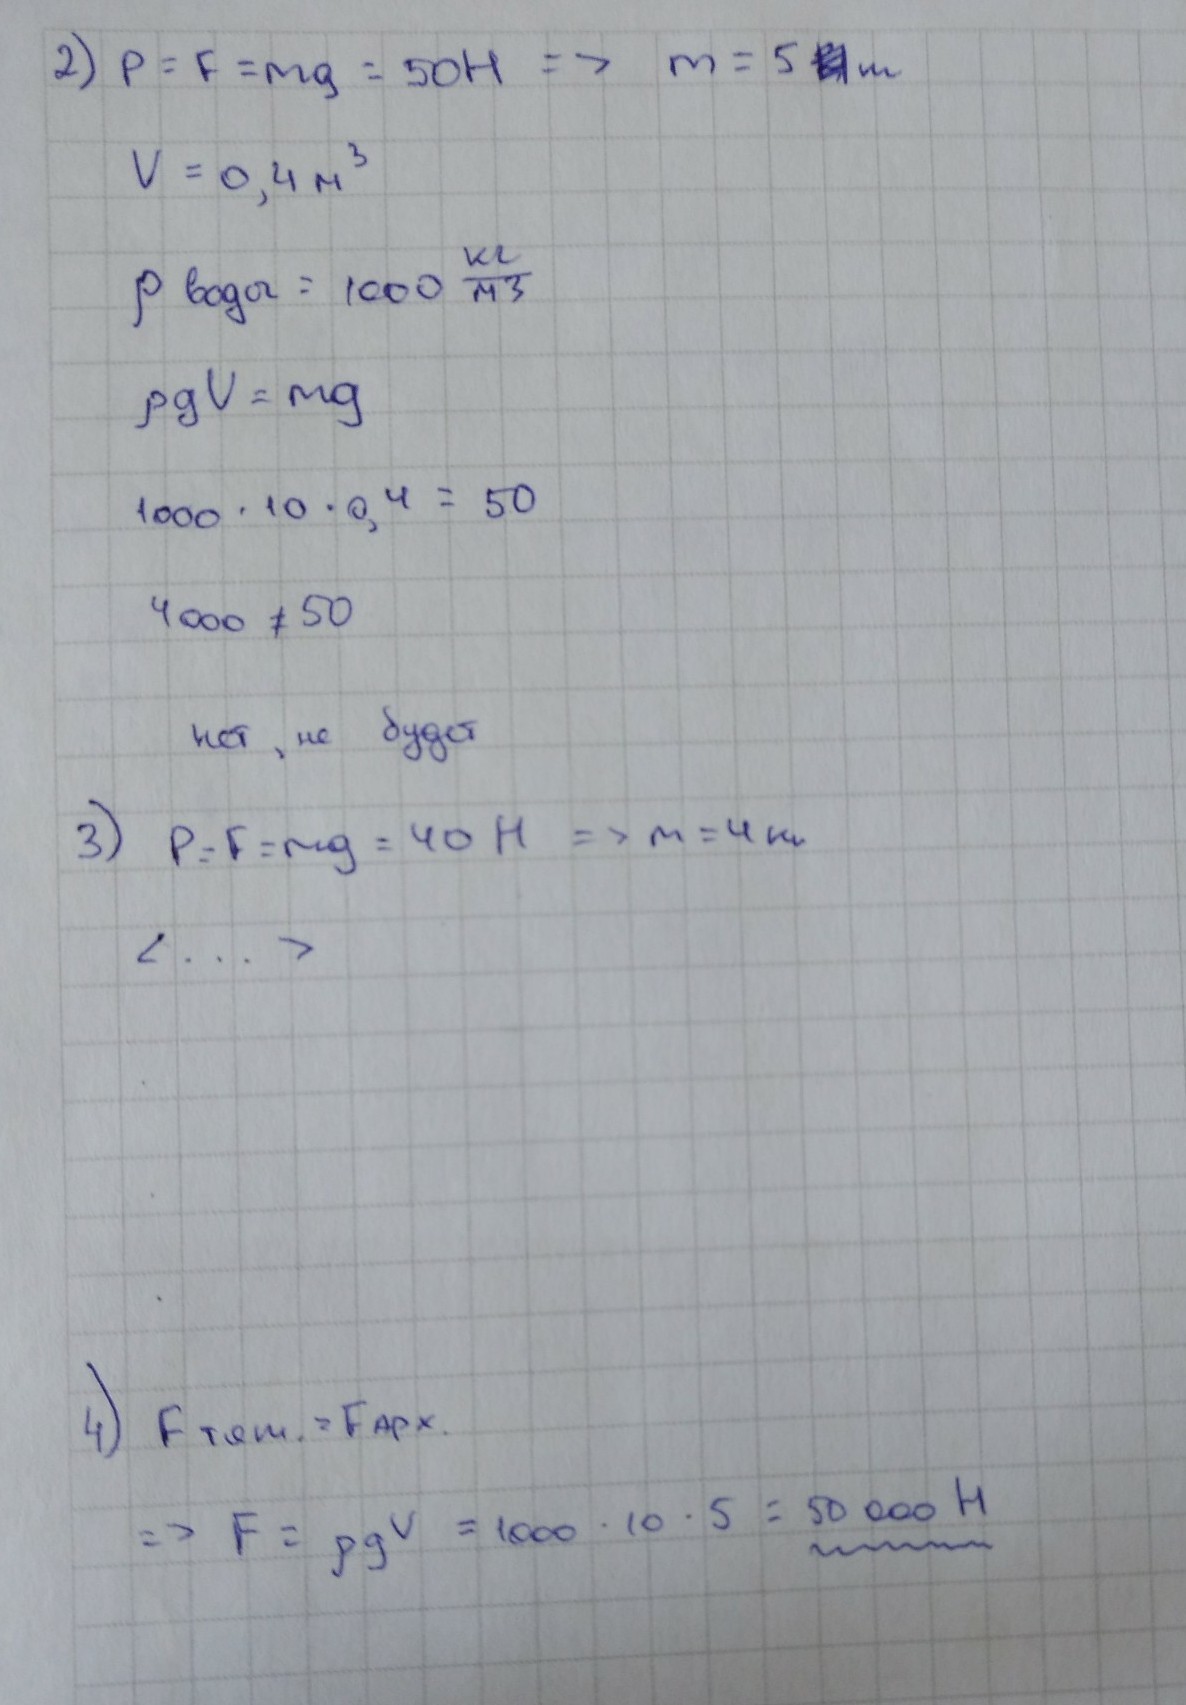 2) P = F = mg = 50H => m = 5 кг
V = 0,4 м³
ρ воды = 1000 кг/м3
ρgV = mg
1000 · 10 · 0,4 = 50
4000 ≠ 50
нет, не будет
3) P = F = mg = 40 H => m = 4 кг
<...>
4) F тяж. = F Арх.
=> F = ρgV = 1000 · 10 · 5 = 50 000 H